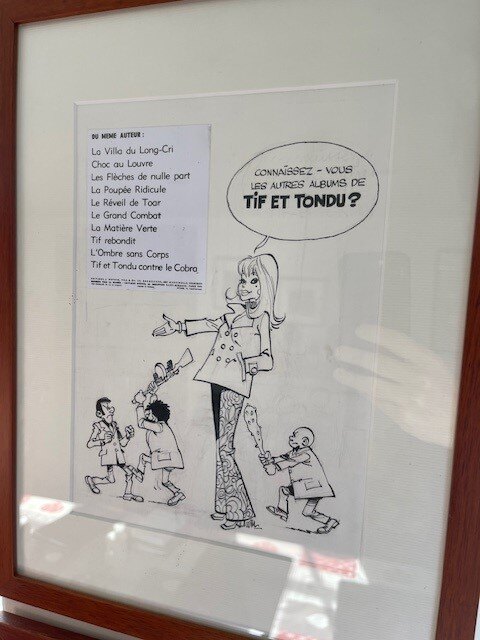 DU MEME AUTEUR :
La Villa du Long-Cri
Choc au Louvre
Les Flèches de nulle part
La Poupée Ridicule
Le Réveil de Toar
Le Grand Combat
La Matière Verte
Tif rebondit
L'Ombre sans Corps
Tif et Tondu contre le Cobra
CONNAÏSSEZ - VOUS
LES AUTRES ALBUMS DE
TIF ET TONDU ?